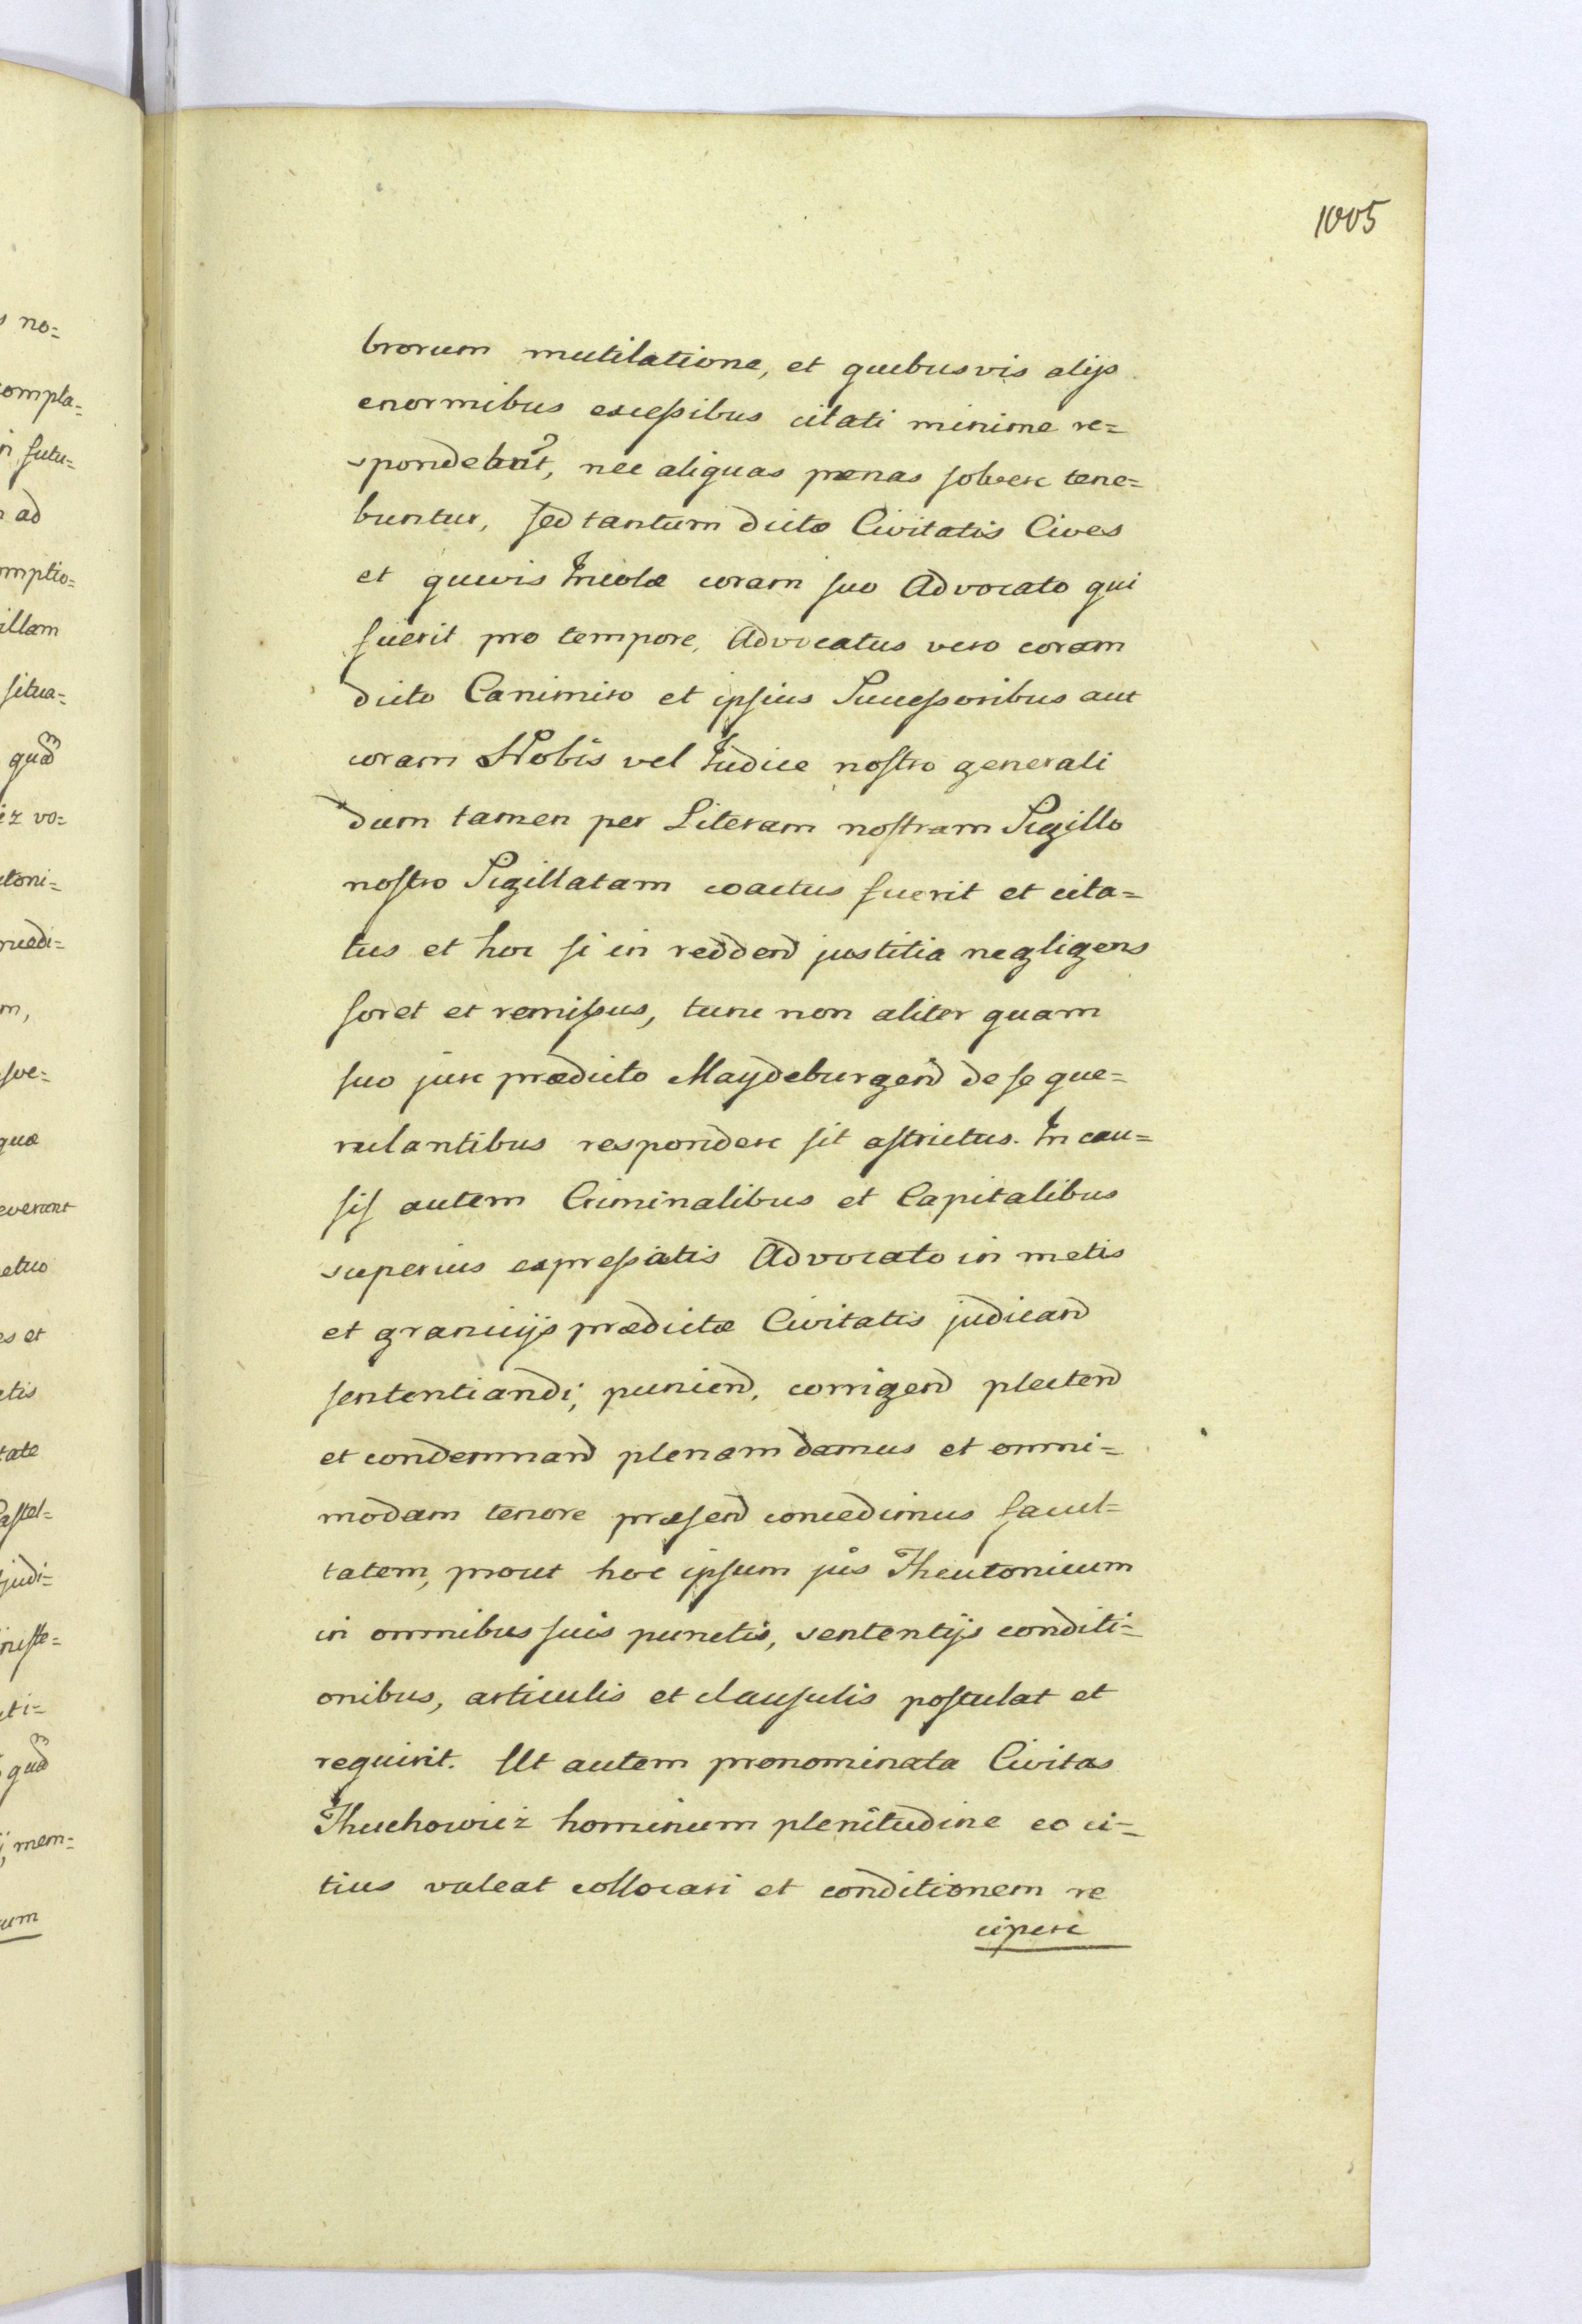 1005
s no=
ompla=
n futu=
n ad
mptio=
illam
situa=
quam
iz vo=
utoni=
medi=
m,
sve=
quæ
everunt
etuo
es et
atis
tate
Castel=
judi=
niste=
uti=
quam
j, mem=
rum
brorum mutilatione, et quibusvis alijs
enormibus excessibus citati minime re=
spondebūt, nec aliquas pænas solvere tene=
buntur, sed tantum dictæ Civitatis Cives
et quivis Incolæ coram suo Advocato qui
fuerit pro tempore, Advocatus vero coram
dicto Canimiro et ipsius Successoribus aut
coram Nobis vel Judice nostro generali
dum tamen per Literam nostram Sigillo
nostro Sigillatam coactus fuerit et cita=
tus et hoc si in reddend justitia negligens
foret et remissus, tunc non aliter quam
suo jure prædicto Maydeburgend de se que=
rulantibus respondere sit astrictus. In cau=
sis autem Criminalibus et Capitalibus
superius expressatis Advocato in metis
et granicijs prædictæ Civitatis judicand
sententiandi, puniend, corrigend plectend
et condemnand plenam damus et omni=
modam tenore præsend concedimus facul=
tatem, prout hoc ipsum jus Theutonicum
in omnibus suis punctis, sententijs conditi=
onibus, articulis et clausulis postulat et
requirit. Ut autem prænominata Civitas
Thuchowicz hominum plenitudine eo ci=
tius valeat collocari et conditionem re
cipere